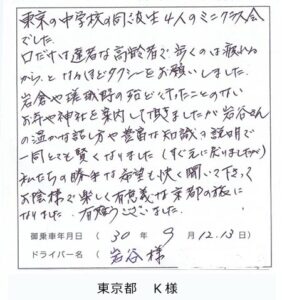 東京の中学校の同級生4人のミニクラス会
でした。
口だけは達者な高齢者で歩くのは疲れる
から、と なるほどタクシーをお願いしました。
岩倉や嵯峨野の殆ど行ったことのない
お寺や神社を案内して頂きましたが岩谷さん
の温かな話し方や豊富な知識の説明で
一同とても賢くなりました(すぐ元に戻りましたが)
私たちの勝手な希望も快く聞いて下さって
お陰様で楽しく有意義な京都の旅に
なりました。有難うございました。
御乗車年月日 ( 30 年 9 月 12.13 日)
ドライバー名 ( 岩谷様 )
東京都 K様